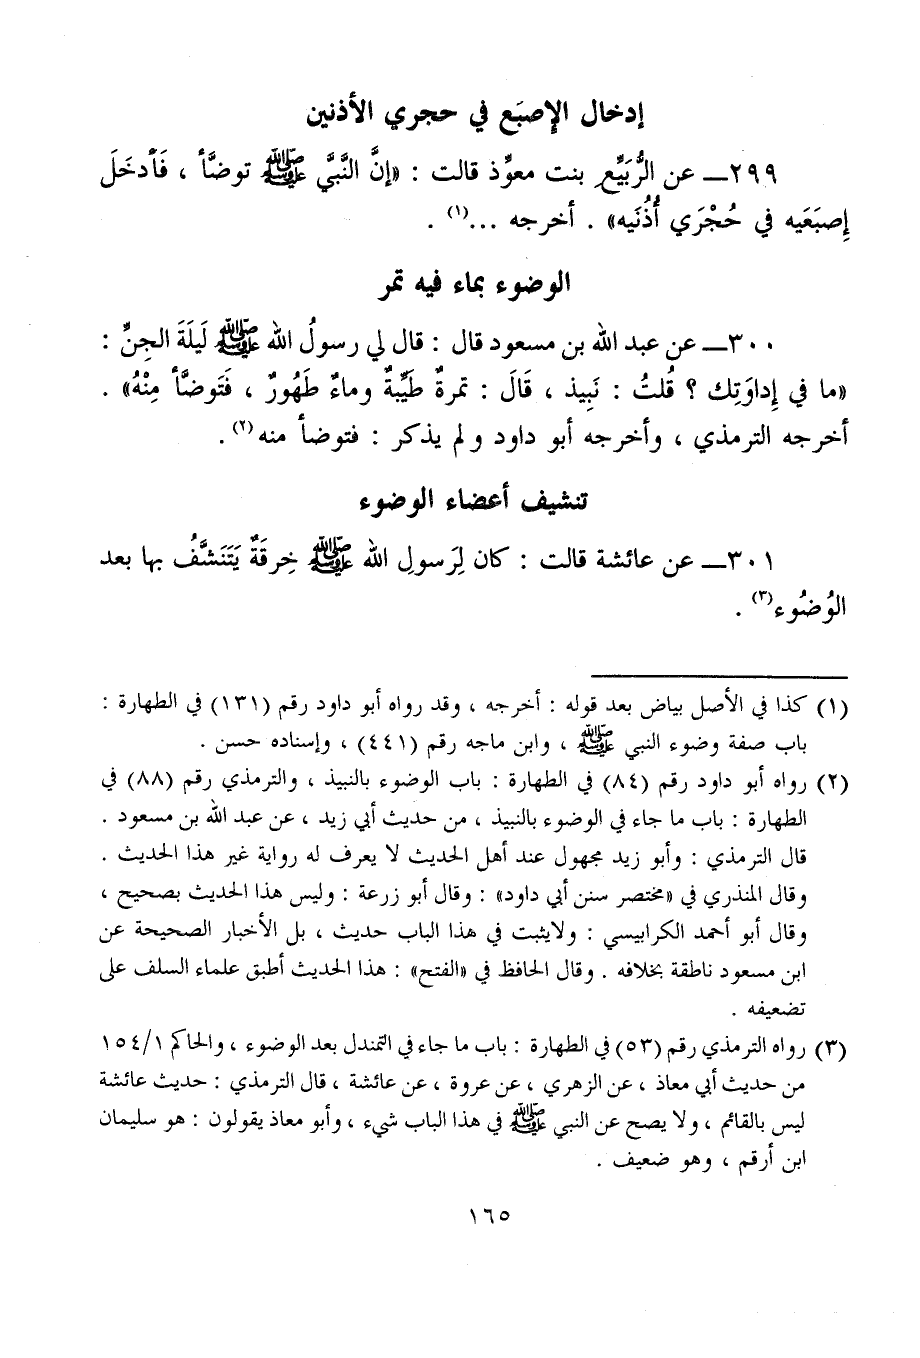 إدخال الإصبَع في حجري الأذنين
٢٩٩ــ عن الرُّبَيِّع بنت معوِّذ قالت : «إنَّ النَّبيَّ ﷺ توضَّأ ، فَأدخَلَ
إصبَعَيه في حُجْرَي أُذُنَيه» . أخرجه ...(١) .
الوضوء بماء فيه تمر
٣٠٠ــ عن عبد الله بن مسعود قال : قال لي رسولُ الله ﷺ لَيلَةَ الجِنِّ :
«ما في إداوَتِك ؟ قُلتُ : نَبِيذ ، قَالَ : تمرةٌ طَيِّبةٌ وماءٌ طَهُورٌ ، فَتَوضَّأ مِنْهُ» .
أخرجه الترمذي ، وأخرجه أبو داود ولم يذكر : فتوضأ منه(٢) .
تنشيف أعضاء الوضوء
٣٠١ــ عن عائشة قالت : كان لِرَسولِ الله ﷺ خِرقَةٌ يَتَنَشَّفُ بها بعد
الوُضُوء(٣) .
(١) كذا في الأصل بياض بعد قوله : أخرجه ، وقد رواه أبو داود رقم (١٣١) في الطهارة :
باب صفة وضوء النبي ﷺ ، وابن ماجه رقم (٤٤١) ، وإسناده حسن .
(٢) رواه أبو داود رقم (٨٤) في الطهارة : باب الوضوء بالنبيذ ، والترمذي رقم (٨٨) في
الطهارة : باب ما جاء في الوضوء بالنبيذ ، من حديث أبي زيد ، عن عبد الله بن مسعود .
قال الترمذي : وأبو زيد مجهول عند أهل الحديث لا يعرف له رواية غير هذا الحديث .
وقال المنذري في «مختصر سنن أبي داود» : وقال أبو زرعة : وليس هذا الحديث بصحيح ،
وقال أبو أحمد الكرابيسي : ولايثبت في هذا الباب حديث ، بل الأخبار الصحيحة عن
ابن مسعود ناطقة بخلافه . وقال الحافظ في «الفتح» : هذا الحديث أطبق علماء السلف على
تضعيفه .
(٣) رواه الترمذي رقم (٥٣) في الطهارة : باب ما جاء في التمندل بعد الوضوء ، والحاكم ١٥٤/١
من حديث أبي معاذ ، عن الزهري ، عن عروة ، عن عائشة ، قال الترمذي : حديث عائشة
ليس بالقائم ، ولا يصح عن النبي ﷺ في هذا الباب شيء ، وأبو معاذ يقولون : هو سليمان
ابن أرقم ، وهو ضعيف .
١٦٥